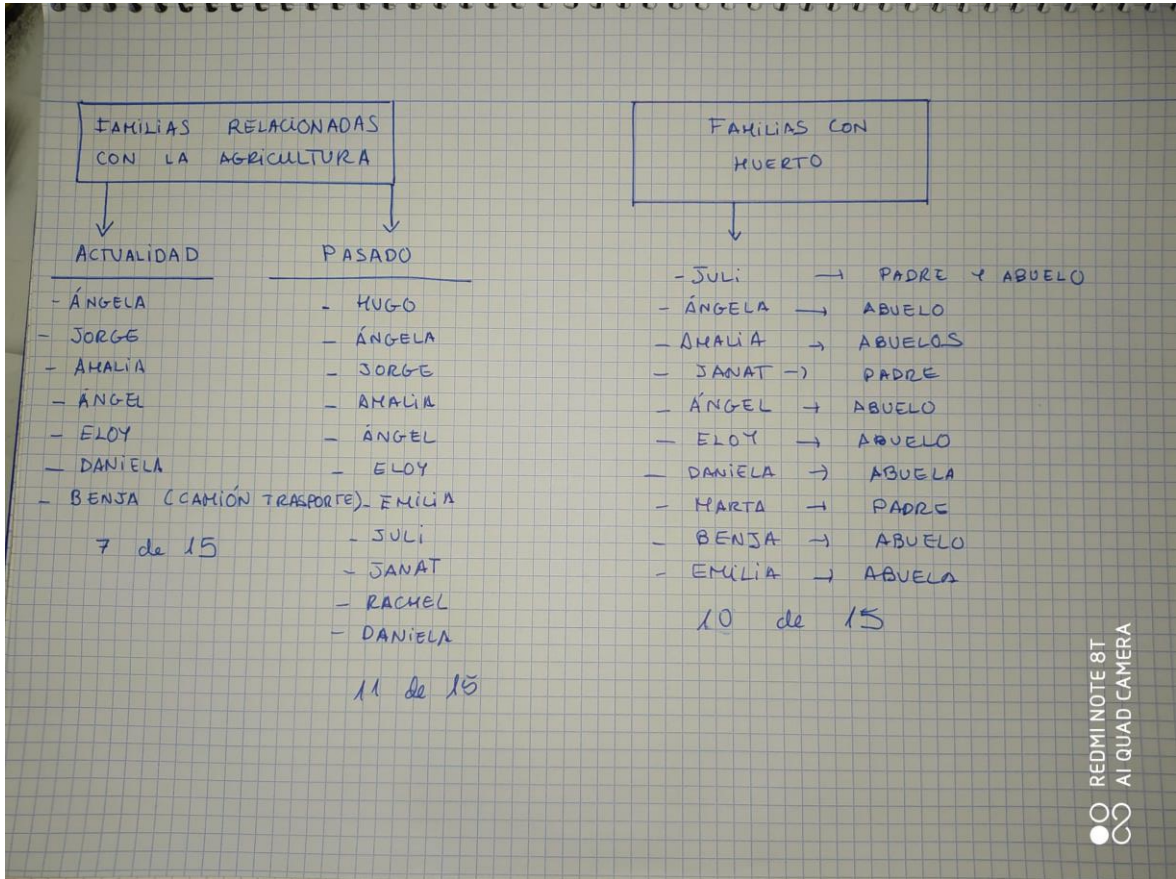 FAMILIAS RELACIONADAS
CON LA AGRICULTURA
ACTUALIDAD
- ÁNGELA
- JORGE
- AMALIA
- ÁNGEL
- ELOY
- DANIELA
- BENJA (CAMIÓN TRASPORTE)
7 de 15
PASADO
- HUGO
- ÁNGELA
- JORGE
- AMALIA
- ÁNGEL
- ELOY
- EMILIA
- JULI
- JANAT
- RACHEL
- DANIELA
11 de 15
FAMILIAS CON
HUERTO
- JULI → PADRE Y ABUELO
- ÁNGELA → ABUELO
- AMALIA → ABUELOS
- JANAT → PADRE
- ÁNGEL → ABUELO
- ELOY → ABUELO
- DANIELA → ABUELA
- MARTA → PADRE
- BENJA → ABUELO
- EMILIA → ABUELA
10 de 15
REDMI NOTE 8T
AI QUAD CAMERA